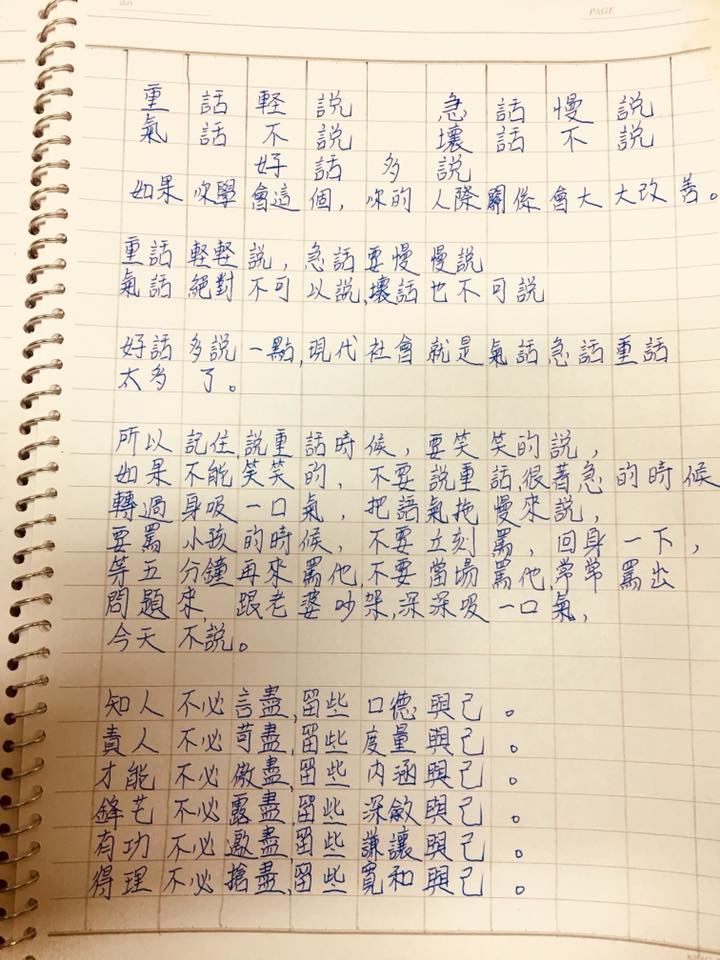 day
PAGE
重話輕説 急話慢説
氣話不説 壞話不説
好話多説
如果你學會這個，你的人際關係會大大改善。
重話輕輕説，急話要慢慢説
氣話絕對不可以説,壞話也不可説
好話多説一點,現代社會就是氣話急話重話
太多了。
所以記住,説重話時候，要笑笑的説，
如果不能笑笑的，不要説重話很著急的時候
轉過身吸一口氣，把語氣拖慢來説，
要罵小孩的時候，不要立刻罵，回身一下，
等五分鐘再來罵他,不要當場罵他,常常罵出
問題來，跟老婆吵架,深深吸一口氣，
今天不説。
知人不必言盡,留些口德與己。
責人不必苛盡,留些度量與己。
才能不必傲盡,留些內涵與己。
鋒芒不必露盡,留些深斂與己。
有功不必邀盡,留些謙讓與己。
得理不必搶盡,留些寬和與己。